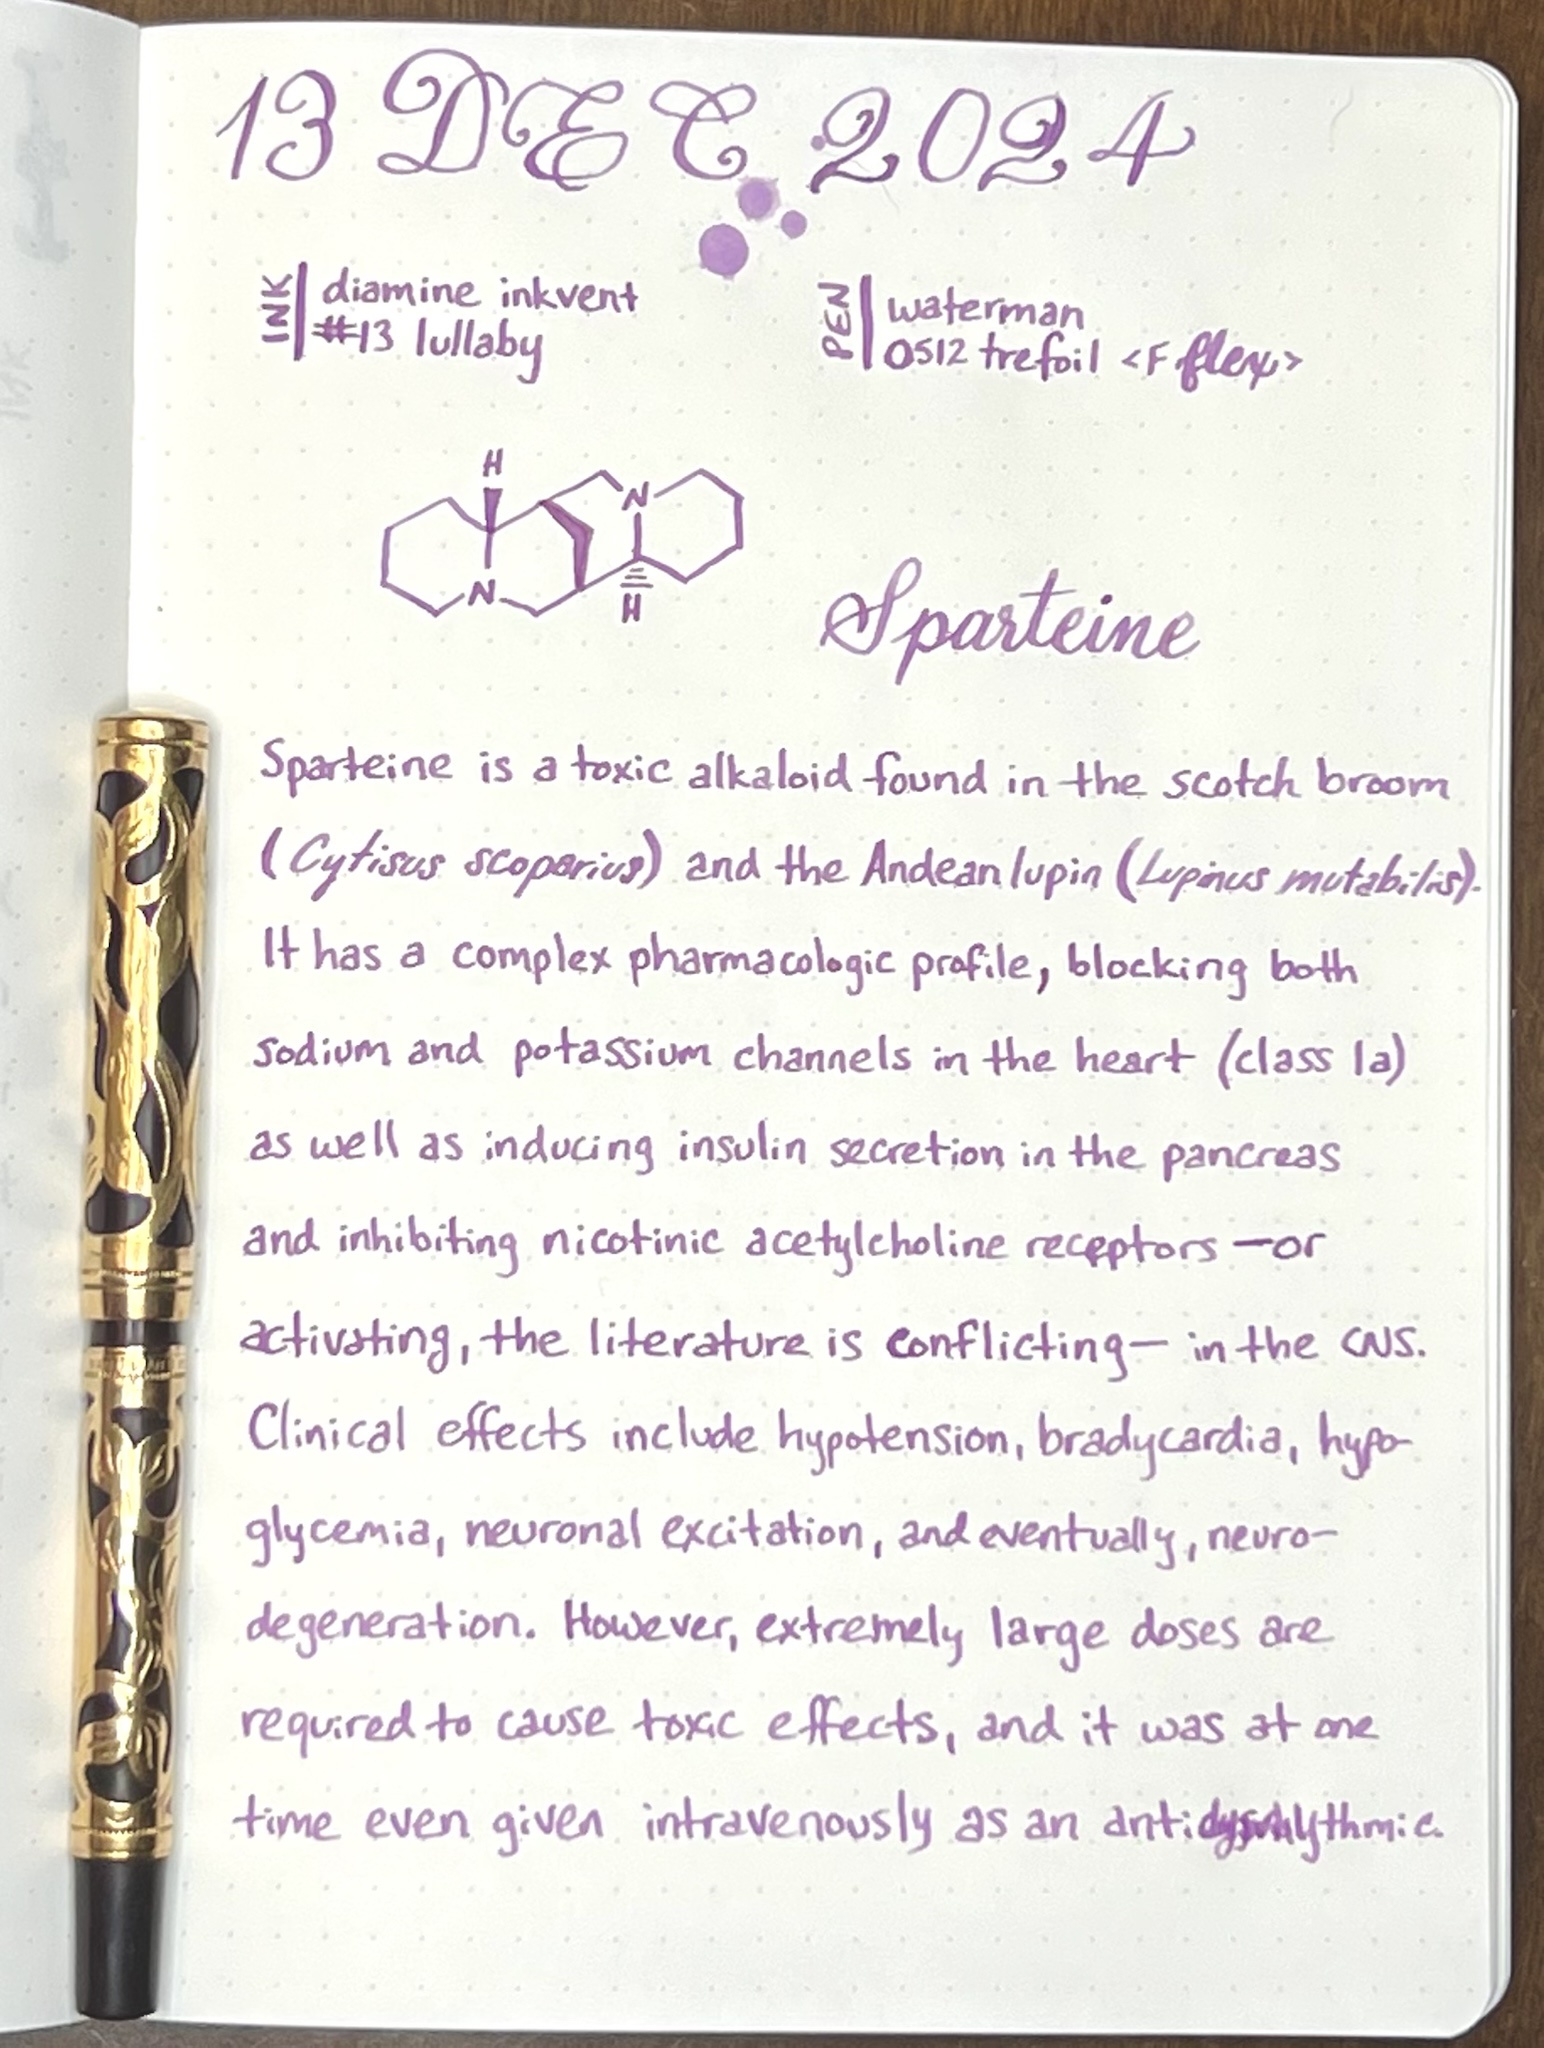 13 DEC 2024
INK
diamine inkvent
#13 lullaby
PEN
waterman
0512 trefoil <F flex>
H
N
N
H
Sparteine
Sparteine is a toxic alkaloid found in the scotch broom
(Cytisus scoparius) and the Andean lupin (Lupinus mutabilis).
It has a complex pharmacologic profile, blocking both
sodium and potassium channels in the heart (class 1a)
as well as inducing insulin secretion in the pancreas
and inhibiting nicotinic acetylcholine receptors —or
activating, the literature is conflicting— in the CNS.
Clinical effects include hypotension, bradycardia, hypo-
glycemia, neuronal excitation, and eventually, neuro-
degeneration. However, extremely large doses are
required to cause toxic effects, and it was at one
time even given intravenously as an antidysrhythmic.